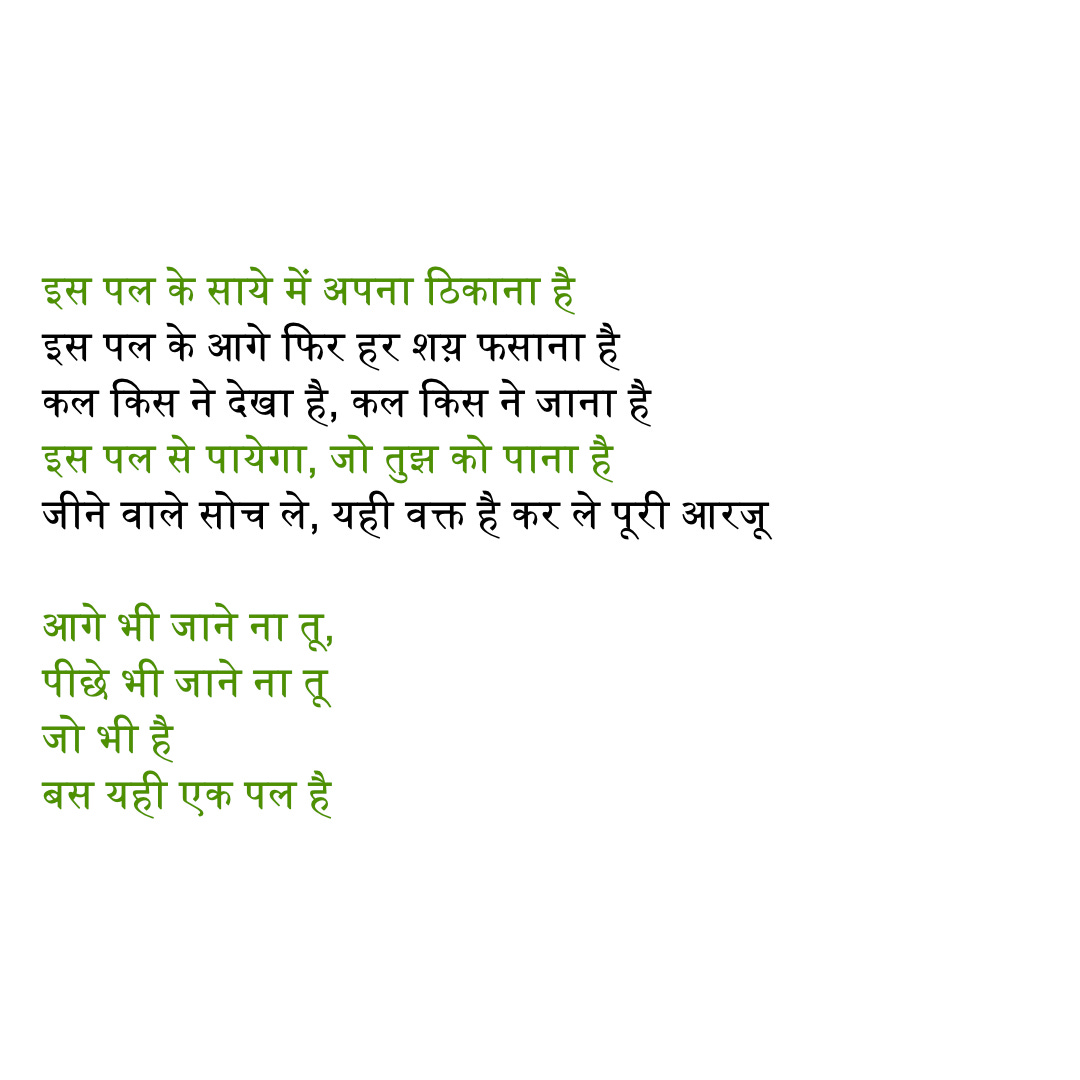 इस पल के साये में अपना ठिकाना है
इस पल के आगे फिर हर शय़ फसाना है
कल किस ने देखा है, कल किस ने जाना है
इस पल से पायेगा, जो तुझ को पाना है
जीने वाले सोच ले, यही वक्त है कर ले पूरी आरजू
आगे भी जाने ना तू,
पीछे भी जाने ना तू
जो भी है
बस यही एक पल है